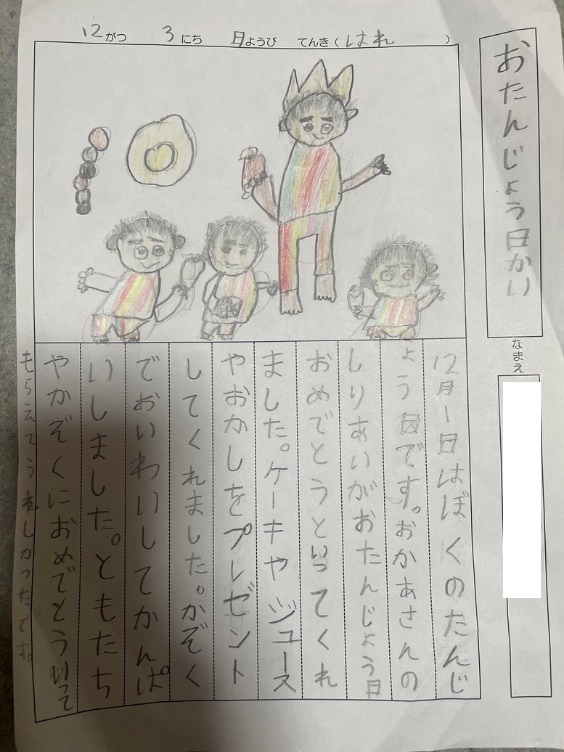 12がつ 3にち 日ようび てんき(はれ)
おたんじょう日かい
なまえ
12月1日はぼくのたんじ
ょう日です。おかあさんの
しりあいがおたんじょう日
おめでとうといってくれ
ました。ケーキやジュース
やおかしをプレゼント
してくれました。かぞく
でおいわいしてかんぱ
いしました。ともたち
やかぞくにおめでとういって
もらえてうれしかったです。